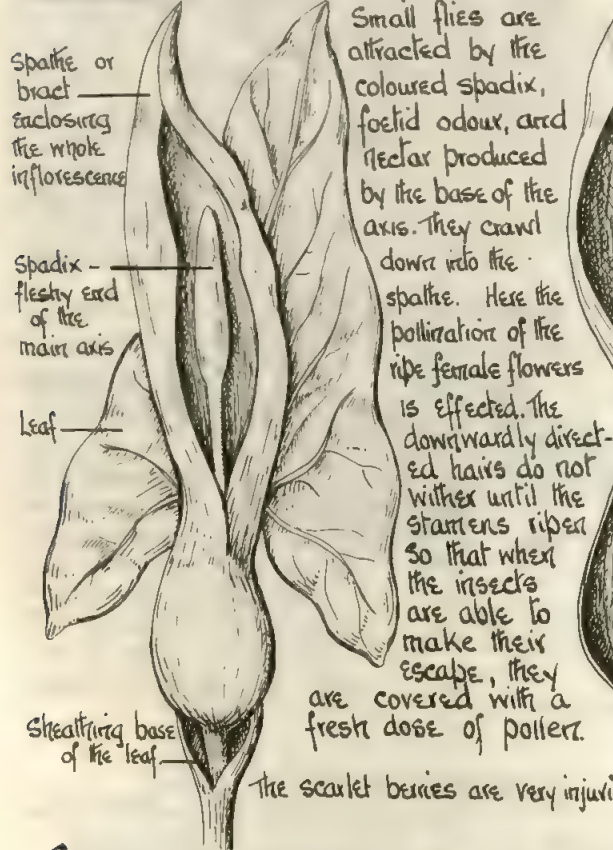 Spathe or
bract
enclosing
the whole
inflorescence
Spadix -
fleshy end
of the
main axis
Leaf
Sheathing base
of the leaf
Small flies are
attracted by the
coloured spadix,
foetid odour, and
nectar produced
by the base of the
axis. They crawl
down into the
spathe. Here the
pollination of the
ripe female flowers
is effected. The
downwardly direct-
ed hairs do not
wither until the
stamens ripen
so that when
the insects
are able to
make their
escape, they
are covered with a
fresh dose of pollen.
The scarlet berries are very injuri